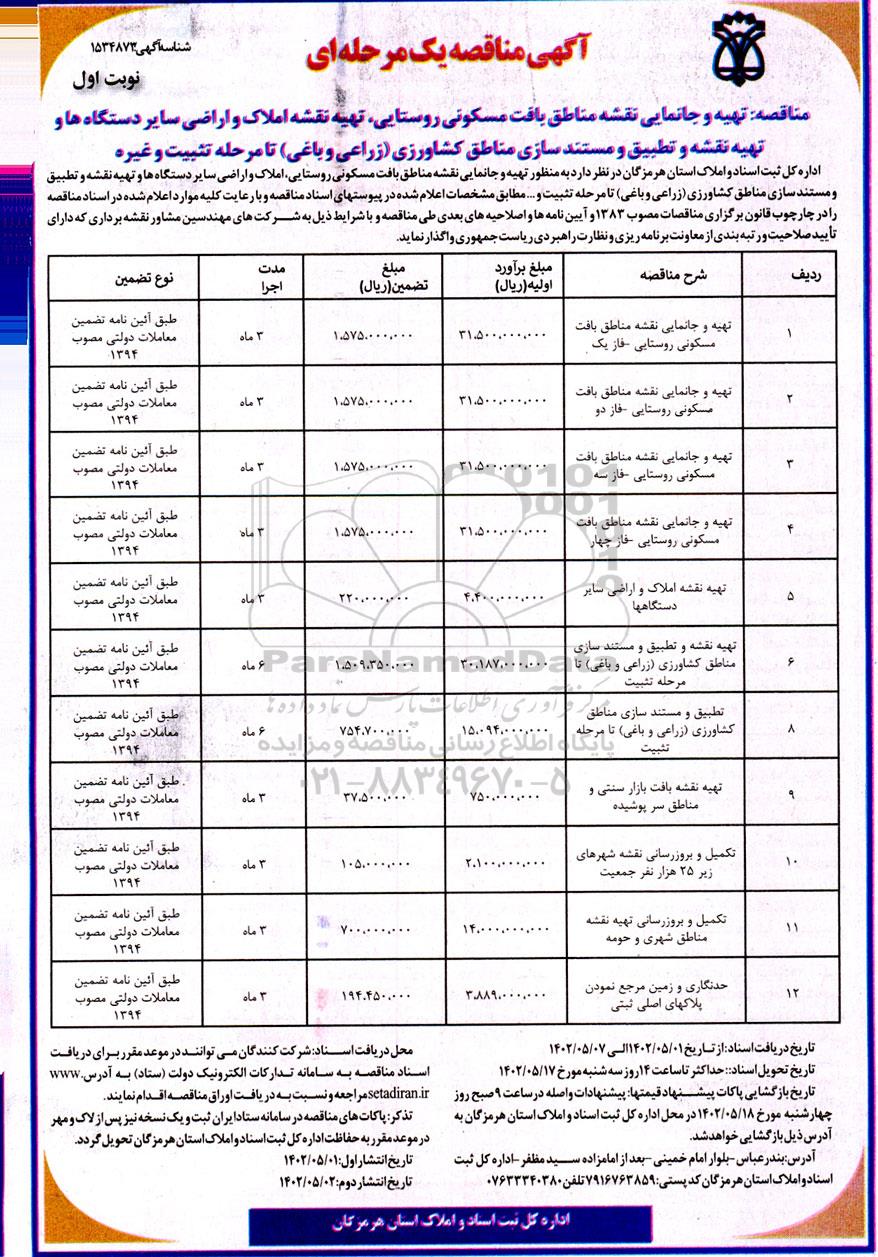 آگهی مناقصه یک مرحله‌ای
شناسه آگهی ۱۵۳۴۸۷۳
نوبت اول
مناقصه: تهیه و جانمایی نقشه مناطق بافت مسکونی روستایی، تهیه نقشه املاک و اراضی سایر دستگاه ها و
تهیه نقشه و تطبیق و مستند سازی مناطق کشاورزی (زراعی و باغی) تا مرحله تثبیت و غیره
اداره کل ثبت اسناد و املاک استان هرمزگان در نظر دارد به منظور تهیه و جانمایی نقشه مناطق بافت مسکونی روستایی، املاک و اراضی سایر دستگاه ها و تهیه نقشه و تطبیق
و مستند سازی مناطق کشاورزی (زراعی و باغی) تا مرحله تثبیت و... مطابق مشخصات اعلام شده در پیوستهای اسناد مناقصه و با رعایت کلیه موارد اعلام شده در اسناد مناقصه
را در چارچوب قانون برگزاری مناقصات مصوب ۱۳۸۳ و آیین نامه ها و اصلاحیه های بعدی طی مناقصه و با شرایط ذیل به شرکت های مهندسین مشاور نقشه برداری که دارای
تأیید صلاحیت و رتبه بندی از معاونت برنامه ریزی و نظارت راهبردی ریاست جمهوری واگذار نماید.
ردیف شرح مناقصه مبلغ برآورد اولیه(ریال) مبلغ تضمین(ریال) مدت اجرا نوع تضمین
۱ تهیه و جانمایی نقشه مناطق بافت مسکونی روستایی -فاز یک ۳۱،۵۰۰،۰۰۰،۰۰۰ ۱،۵۷۵،۰۰۰،۰۰۰ ۳ ماه طبق آئین نامه تضمین معاملات دولتی مصوب ۱۳۹۴
۲ تهیه و جانمایی نقشه مناطق بافت مسکونی روستایی -فاز دو ۳۱،۵۰۰،۰۰۰،۰۰۰ ۱،۵۷۵،۰۰۰،۰۰۰ ۳ ماه طبق آئین نامه تضمین معاملات دولتی مصوب ۱۳۹۴
۳ تهیه و جانمایی نقشه مناطق بافت مسکونی روستایی -فاز سه ۳۱،۵۰۰،۰۰۰،۰۰۰ ۱،۵۷۵،۰۰۰،۰۰۰ ۳ ماه طبق آئین نامه تضمین معاملات دولتی مصوب ۱۳۹۴
۴ تهیه و جانمایی نقشه مناطق بافت مسکونی روستایی -فاز چهار ۳۱،۵۰۰،۰۰۰،۰۰۰ ۱،۵۷۵،۰۰۰،۰۰۰ ۳ ماه طبق آئین نامه تضمین معاملات دولتی مصوب ۱۳۹۴
۵ تهیه نقشه املاک و اراضی سایر دستگاهها ۴،۴۰۰،۰۰۰،۰۰۰ ۲۲۰،۰۰۰،۰۰۰ ۳ ماه طبق آئین نامه تضمین معاملات دولتی مصوب ۱۳۹۴
۶ تهیه نقشه و تطبیق و مستند سازی مناطق کشاورزی (زراعی و باغی) تا مرحله تثبیت ۳۰،۱۸۷،۰۰۰،۰۰۰ ۱،۵۰۹،۳۵۰،۰۰۰ ۶ ماه طبق آئین نامه تضمین معاملات دولتی مصوب ۱۳۹۴
۸ تطبیق و مستند سازی مناطق کشاورزی (زراعی و باغی) تا مرحله تثبیت ۱۵،۰۹۴،۰۰۰،۰۰۰ ۷۵۴،۷۰۰،۰۰۰ ۶ ماه طبق آئین نامه تضمین معاملات دولتی مصوب ۱۳۹۴
۹ تهیه نقشه بافت بازار سنتی و مناطق سر پوشیده ۷۵۰،۰۰۰،۰۰۰ ۳۷،۵۰۰،۰۰۰ ۳ ماه طبق آئین نامه تضمین معاملات دولتی مصوب ۱۳۹۴
۱۰ تکمیل و بروزرسانی نقشه شهرهای زیر ۲۵ هزار نفر جمعیت ۲،۱۰۰،۰۰۰،۰۰۰ ۱۰۵،۰۰۰،۰۰۰ ۳ ماه طبق آئین نامه تضمین معاملات دولتی مصوب ۱۳۹۴
۱۱ تکمیل و بروزرسانی تهیه نقشه مناطق شهری و حومه ۱۴،۰۰۰،۰۰۰،۰۰۰ ۷۰۰،۰۰۰،۰۰۰ ۳ ماه طبق آئین نامه تضمین معاملات دولتی مصوب ۱۳۹۴
۱۲ حدنگاری و زمین مرجع نمودن پلاکهای اصلی ثبتی ۳،۸۸۹،۰۰۰،۰۰۰ ۱۹۴،۴۵۰،۰۰۰ ۳ ماه طبق آئین نامه تضمین معاملات دولتی مصوب ۱۳۹۴
ParsNamadData
مرکز فرآوری اطلاعات پارس نماد داده‌ها
پایگاه اطلاع رسانی مناقصه و مزایده
۰۲۱-۸۸۳۴۹۶۷۰-۵
تاریخ دریافت اسناد: از تاریخ ۱۴۰۲/۰۵/۰۱ الی ۱۴۰۲/۰۵/۰۷
تاریخ تحویل اسناد:: حداکثر تا ساعت ۱۴ روز سه شنبه مورخ ۱۴۰۲/۰۵/۱۷
تاریخ بازگشایی پاکات پیشنهاد قیمتها: پیشنهادات واصله در ساعت ۹ صبح روز
چهارشنبه مورخ ۱۴۰۲/۰۵/۱۸ در محل اداره کل ثبت اسناد و املاک استان هرمزگان به
آدرس ذیل بازگشایی خواهد شد.
آدرس: بندرعباس-بلوار امام خمینی-بعد از امامزاده سید مظفر-اداره کل ثبت
اسناد و املاک استان هرمزگان کد پستی: ۷۹۱۶۷۶۳۸۵۹ تلفن ۰۷۶۳۳۳۴۰۳۸۰
محل دریافت اسناد: شرکت کنندگان می توانند در موعد مقرر برای دریافت
اسناد مناقصه به سامانه تدارکات الکترونیک دولت (ستاد) به آدرس www.
setadiran.ir مراجعه و نسبت به دریافت اوراق مناقصه اقدام نمایند.
تذکر: پاکات های مناقصه در سامانه ستاد ایران ثبت و یک نسخه نیز پس از لاک و مهر
در موعد مقرر به حفاظت اداره کل ثبت اسناد و املاک استان هرمزگان تحویل گردد.
تاریخ انتشار اول: ۱۴۰۲/۰۵/۰۱
تاریخ انتشار دوم: ۱۴۰۲/۰۵/۰۲
اداره کل ثبت اسناد و املاک استان هرمزگان